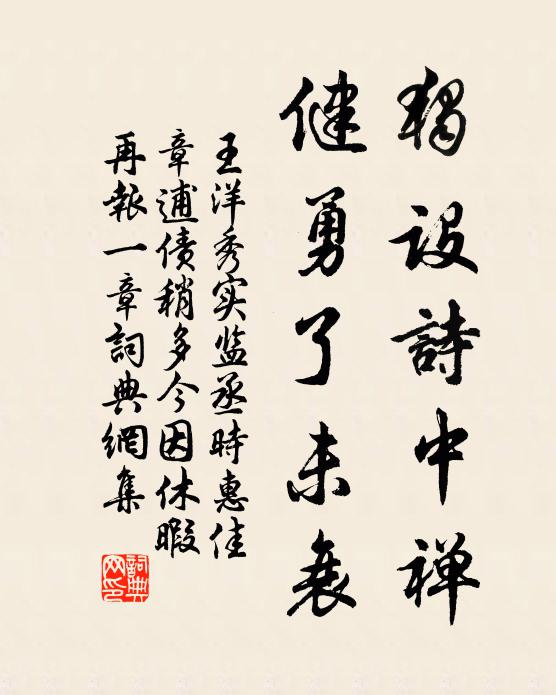 獨設詩中禅
健勇了未衰
王洋秀实监丞時惠佳
章逋债稍多今因休暇
再報一章詞典網集
詞典网印